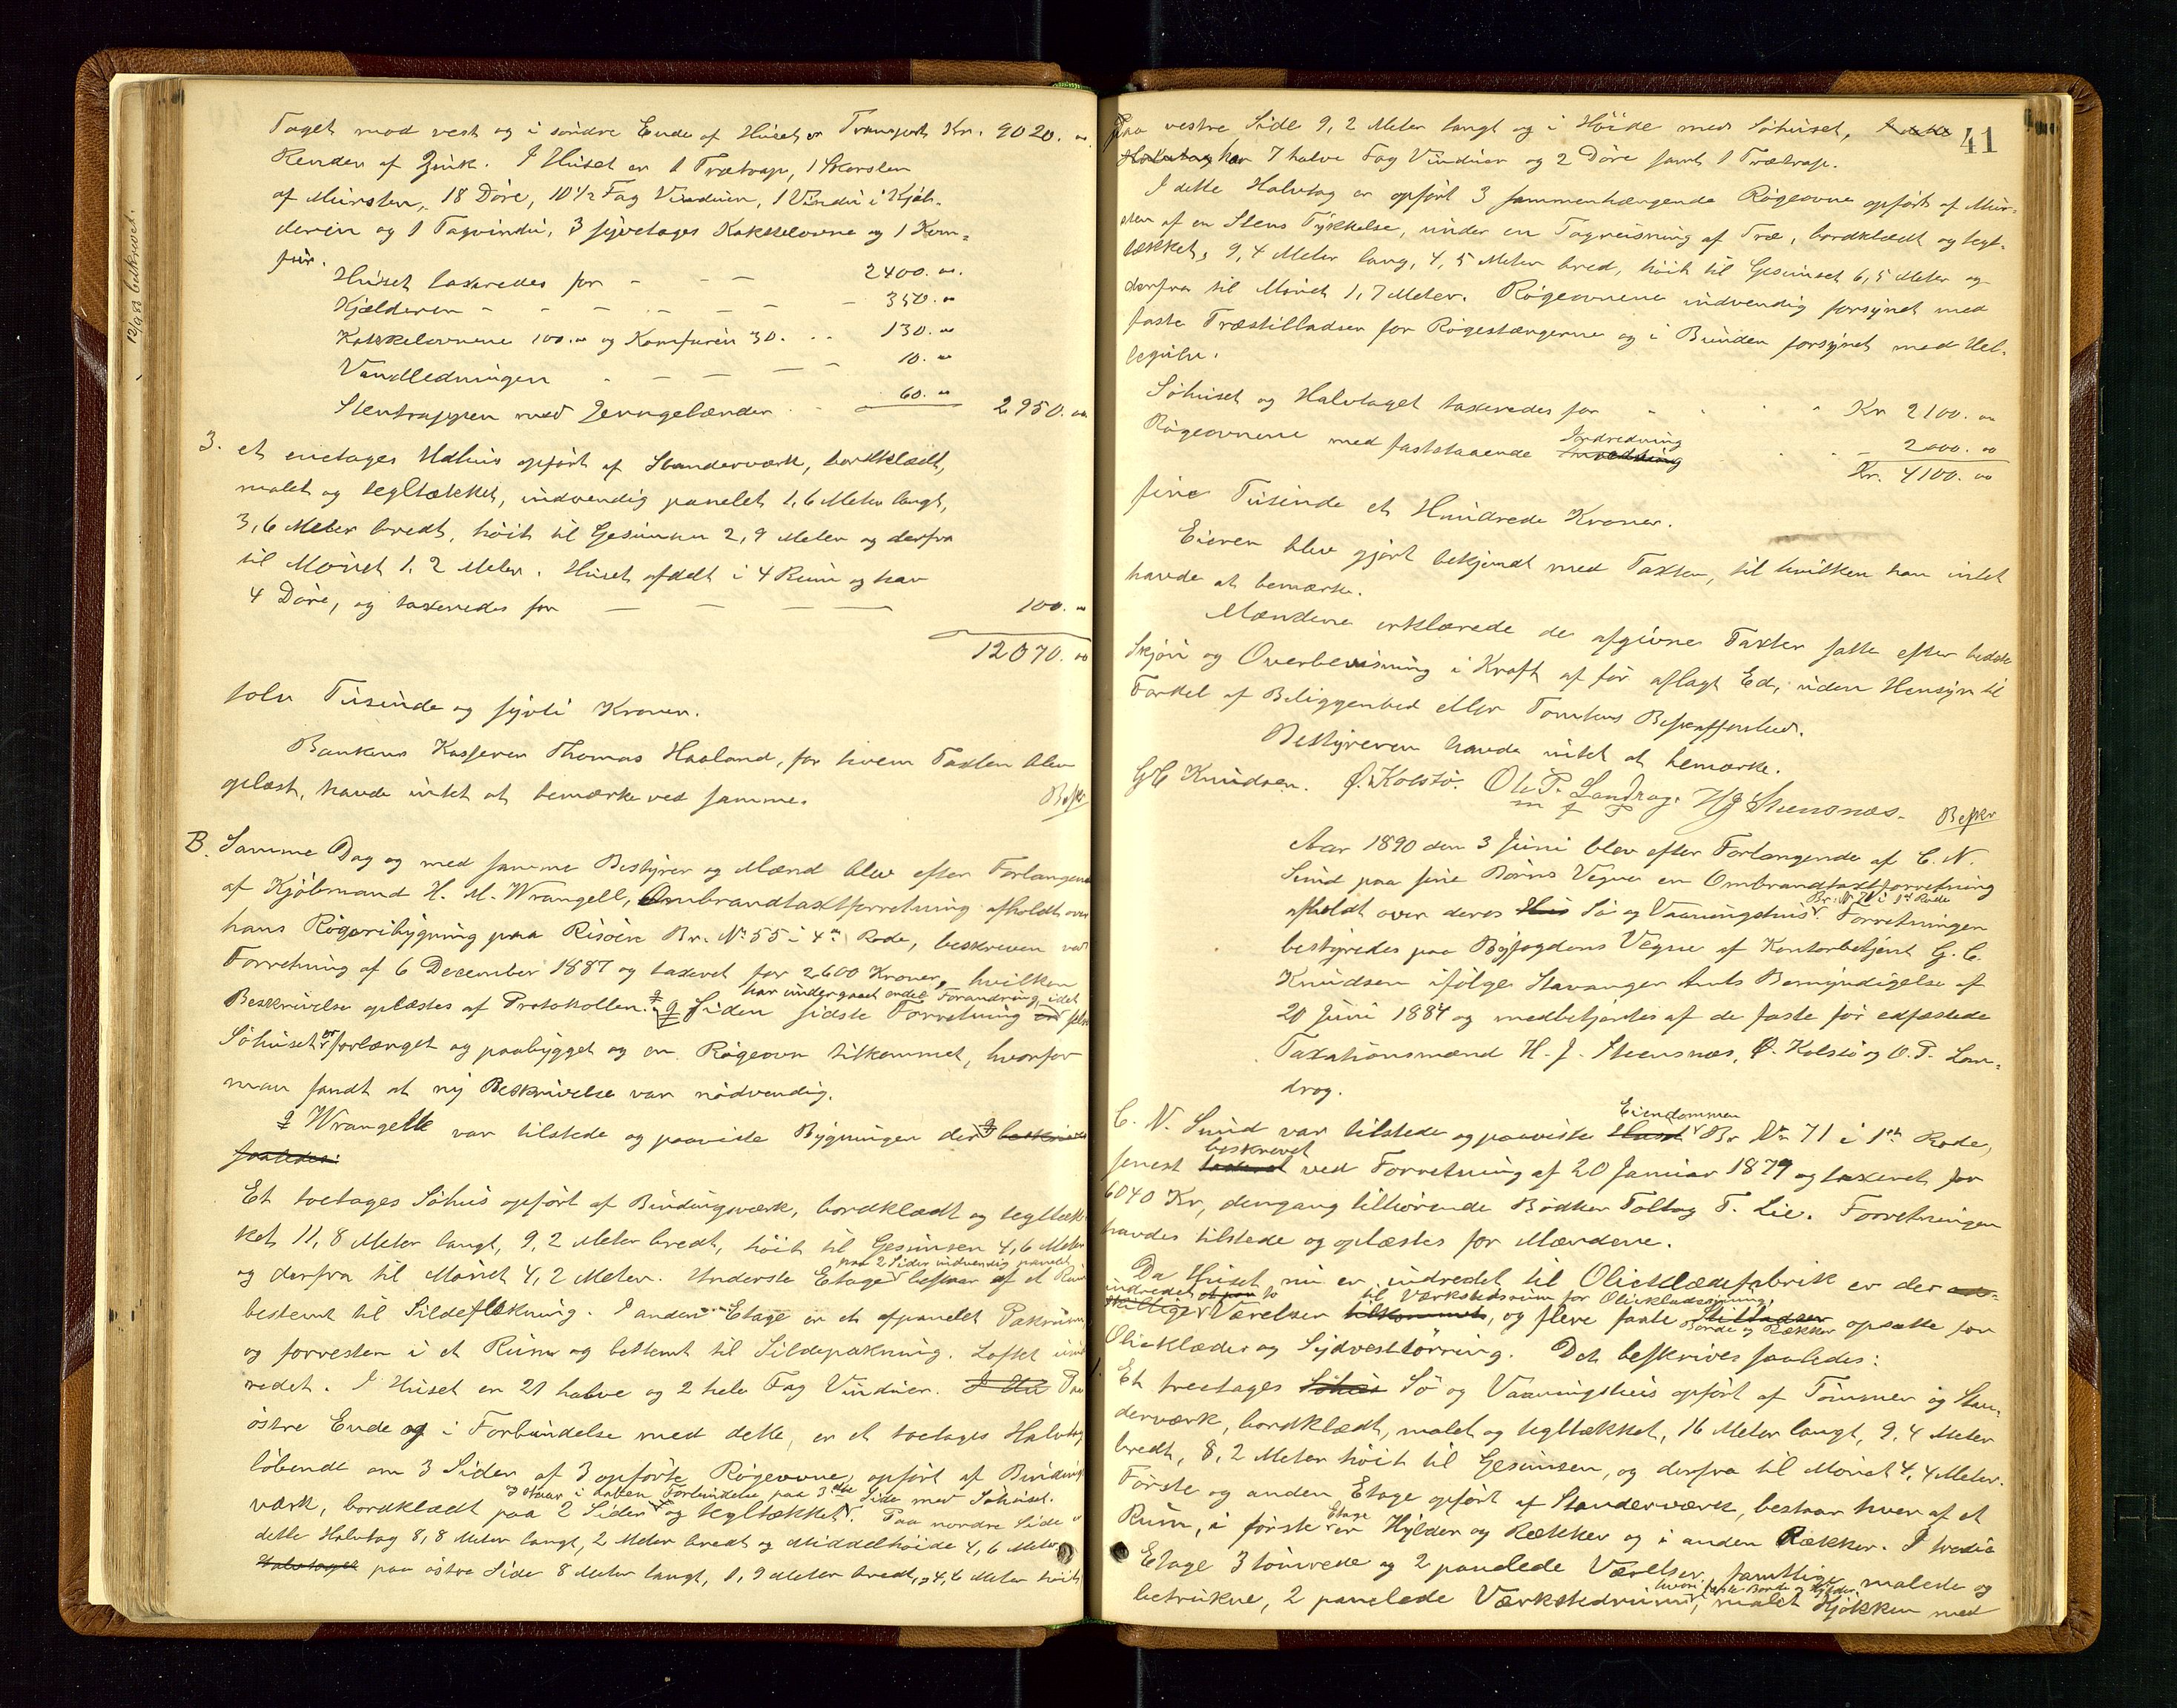 12/9 88 beskrevet.
Taget mod vest og i søndre Ende af Huset er Transport Kr. 9020. "
Render af Zink. I Huset er 1 Trætrap, 1 Skorsten
af Mursten, 18 Døre, 10 1/2 Fag Vinduer, 1 Vindu i Kjæl-
deren og 1 Tagvindu, 3 Kakkelovne og 1 Kom-
fur.
Huset taxeredes for - - - 2400. "
Kjælderen - - - - - - 350. "
Kakkelovnene 100. " og Komfuren 30. - - 130. "
Vandledningen - - - - - 10. "
Stentrappen med Jerngelænder - - 60. " 2950. "
3. et enetages Udhus opført af Standerværk, bordklædt,
malet og tegltækket, indvendig panelet 1,6 Meter langt,
3,6 Meter bredt, høit til Gesimsen 2,9 Meter og derfra
til Mønet 1,2 Meter. Huset afdelt i 4 Rum og har
4 Døre, og taxeredes for - - - - 100. "
12070. "
tolv Tusinde og sytti Kroner.
Bankens Kasserer Thomas Haaland, for hvem Taxten blev
oplæst, havde intet at bemærke ved samme. Beskr
B. Samme Dag og med samme Bestyrer og Mænd blev efter Forlangende
af Kjøbmand H. M. Wrangell, Ombrandtaxtforretning afholdt over
hans Røgeribygning paa Risøen Br. No 55 i 4de Rode, beskreven ved
Forretning af 6 December 1887 og taxeret for 2600 Kroner, hvilken
har undergaaet endel Forandring, idet
Beskrivelse oplæstes af Protokollen. Siden sidste Forretning er selve
Søhuset er forlænget og paabygget og en Røgeovn tilkommet, hvorfor
man fandt at ny Beskrivelse var nødvendig.
Wrangell var tilstede og paaviste Bygningen der beskrives
saaledes:
Et toetages Søhus opført af Bindingsværk, bordklædt og tegltæk-
ket 11,8 Meter langt, 9,2 Meter bredt, høit til Gesimsen 4,6 Meter
paa 2 Sider indvendig panelet
og derfra til Mønet 4,2 Meter. Underste Etage bestaar af et Rum
bestemt til Sildeflækning. I anden Etage er et afpanelet Pakrum,
og forresten i et Rum og bestemt til Sildepakning. Loftet
redet. I Huset er 21 halve og 2 hele Fag Vinduer. Paa
østre Ende og i Forbindelse med dette, er et toetages Halvtag
løbende om 3 Sider af 3 opførte Røgeovne, opført af Bindings-
og staar i aaben Forbindelse paa 3die Side med Søhuset.
værk, bordklædt paa 2 Sider og tegltækket. Paa nordre Side er
dette Halvtag 8,8 Meter langt, 2 Meter bredt og Middelhøide 4,6 Meter
Halvtaget paa østre Side 8 Meter langt, 1,9 Meter bredt, 4,6 Meter høit
41
Paa vestre Side 9,2 Meter langt og i Høide med Søhuset,
Halvtag har 7 halve Fag Vinduer og 2 Døre samt 1 Trætrap.
I dette Halvtag er opført 3 sammenhængende Røgeovne opført af Mur-
sten af en Stens Tykkelse, under en Tagreisning af Træ, bordklædt og tegl-
tækket, 9,4 Meter lang, 4,5 Meter bred, høit til Gesimset 6,5 Meter og
derfra til Mønet 1,7 Meter. Røgeovnene indvendig forsynet med
faste Træstilladser for Røgestængerne og i Bunden forsynet med Hel-
legulv.
Søhuset og Halvtaget taxeredes for - - - - Kr 2100. "
Indredning
Røgeovnene med faststaaende Inredning - - - 2000. "
Kr. 4100. "
fire Tusinde et Hundrede Kroner.
Eieren blev gjort bekjendt med Taxten, til hvilken han intet
havde at bemærke.
Mændene erklærede de afgivne Taxter satte efter bedste
Skjøn og Overbevisning i Kraft af før aflagt Ed, uden Hensyn til
Fordel af Beliggenhed eller Tomtens Beskaffenhed.
Bestyreren havde intet at bemærke.
G C Knudsen. Ø. Kolstø. Ole P. Landrag. H J Steensnæs. Beskr
m f P
Aar 1890 den 3 Juni blev efter Forlangende af C. N.
Sund paa sine Børns Vegne en Ombrandtaxtforretning
Br. No 71 i 1st Rode
afholdt over deres Hus Sø og Vaaningshus. Forretningen
bestyredes paa Byfogdens Vegne af Kontorbetjent G. C.
Knudsen ifølge Stavanger Amts Bemyndigelse af
20 Juni 1884 og medbetjentes af de faste før edfæstede
Taxationsmænd H. J. Steensnæs, Ø. Kolstø og O. P. Lan-
drag.
Eiendommen
C. N. Sund var tilstede og paaviste Huset Br No 71 i 1ste Rode,
beskrevet
senest taxeret ved Forretning af 20 Januar 1879 og taxeret for
6040 Kr, dengang tilhørende Bødker Tollag T. Lie. Forretningen
havdes tilstede og oplæstes for Mændene.
Da Huset nu er indredet til Olieklædefabrik er der
indredet et par to til Værkstedsrum for Olieklædesyning,
skillige Værelser tilkommet, og flere faste Stilladser Borde og Rækker opsatte for
Olieklæder og Sydvesttørring. Det beskrives saaledes:
1. Et treetages Søhus Sø og Vaaningshus opført af Tømmer og Stan-
derværk, bordklædt, malet og tegltækket, 16 Meter langt, 9,4 Meter
bredt, 8,2 Meter høit til Gesimsen, og derfra til Mønet 4,4 Meter.
Første og anden Etage opført af Standerværk, bestaar hver af et
Etage
Rum, i første er Hylder og Rækker og i anden Rækker. I tredie
Etage 3 tømrede og 2 panelede Værelser, samtlige malede og
hvori faste Borde og Hylder,
betrukne, 2 panelede Værkstedrum, malet Kjøkken med